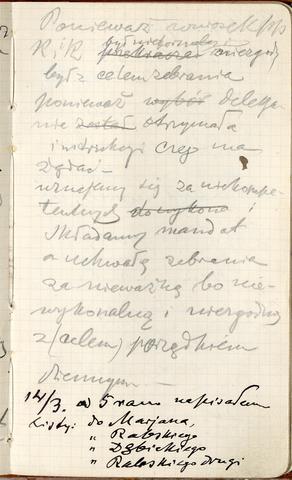 Ponieważ wniosek pp
K i K był nieformalny
przekracza niezgodny
będz celem zebrania
ponieważ wybór delega-
nie został otrzymała
i instrukcji czego ma
żądać —
uznajemy się za niekompe-
tentnych do wykona i
składamy mandat
a uchwałę zebrania
za nieważną bo nie-
wykonalną i niezgodną
z (celem) porządkiem
dziennym —
14/3. o 5 rano napisałem
Listy: do Marjana,
" Rabskiego
" Dębickiego
" Rabskiego drugi